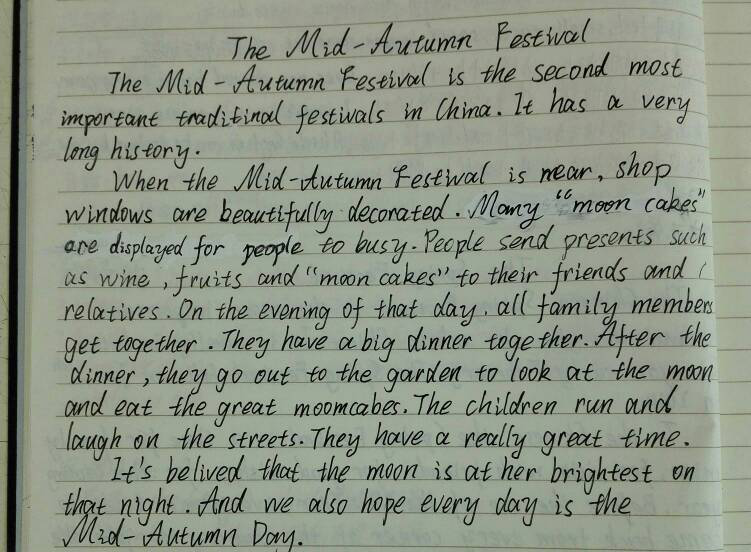 The Mid-Autumn Festival
The Mid-Autumn Festival is the second most
important traditinal festivals in China. It has a very
long history.
When the Mid-Autumn Festival is near, shop
windows are beautifully decorated. Many "moon cakes"
are displayed for people to busy. People send presents such
as wine, fruits and "moon cakes" to their friends and
relatives. On the evening of that day, all family members
get together. They have a big dinner together. After the
dinner, they go out to the garden to look at the moon
and eat the great moomcabes. The children run and
laugh on the streets. They have a really great time.
It's belived that the moon is at her brightest on
that night. And we also hope every day is the
Mid-Autumn Day.